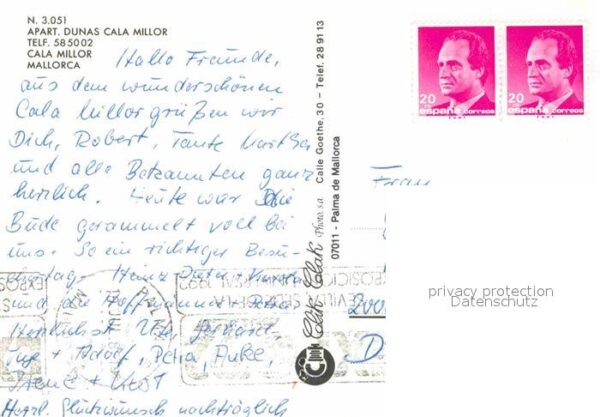 N. 3.051
APART. DUNAS CALA MILLOR
TELF. 585002
CALA MILLOR
MALLORCA
Hallo Freunde,
aus dem wunderschönen
Cala Millor grüßen wir
Dich, Robert, Tante
und alle Bekannten ganz
herzlich. Heute war die
Bude gerammelt voll bei
uns. So ein richtiger Besu-
chstag. Heinz Dieter +
und die Hoffmänner +
Herzlichst Uli,
Inge + Adolf, Petra, Anke,
Irene +
Herzl. Glückwunsch nachträglich
Clik Clak Photo, s.a. Calle Goethe, 30 - Telef. 28 91 13
07011 - Palma de Mallorca
20
españa correos
20
españa correos
Frau
privacy protection
Datenschutz